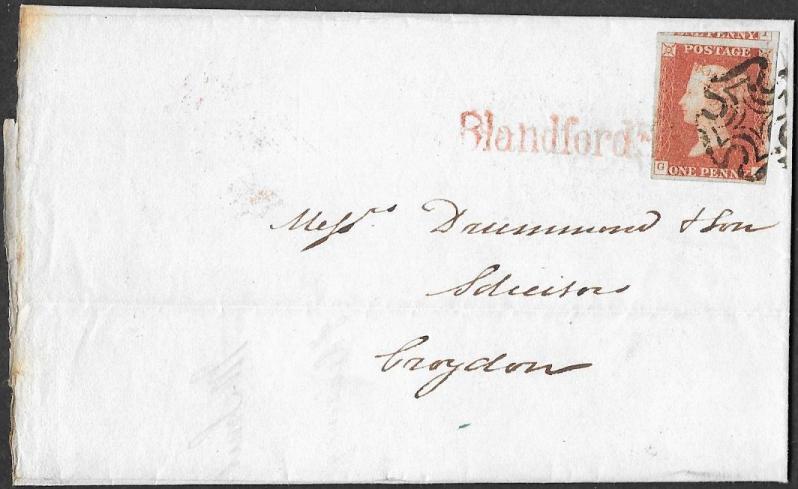 PENNY
POSTAGE
Blandford
G
ONE PENNY
Messrs Drummond & Son
Solicitors
Croydon